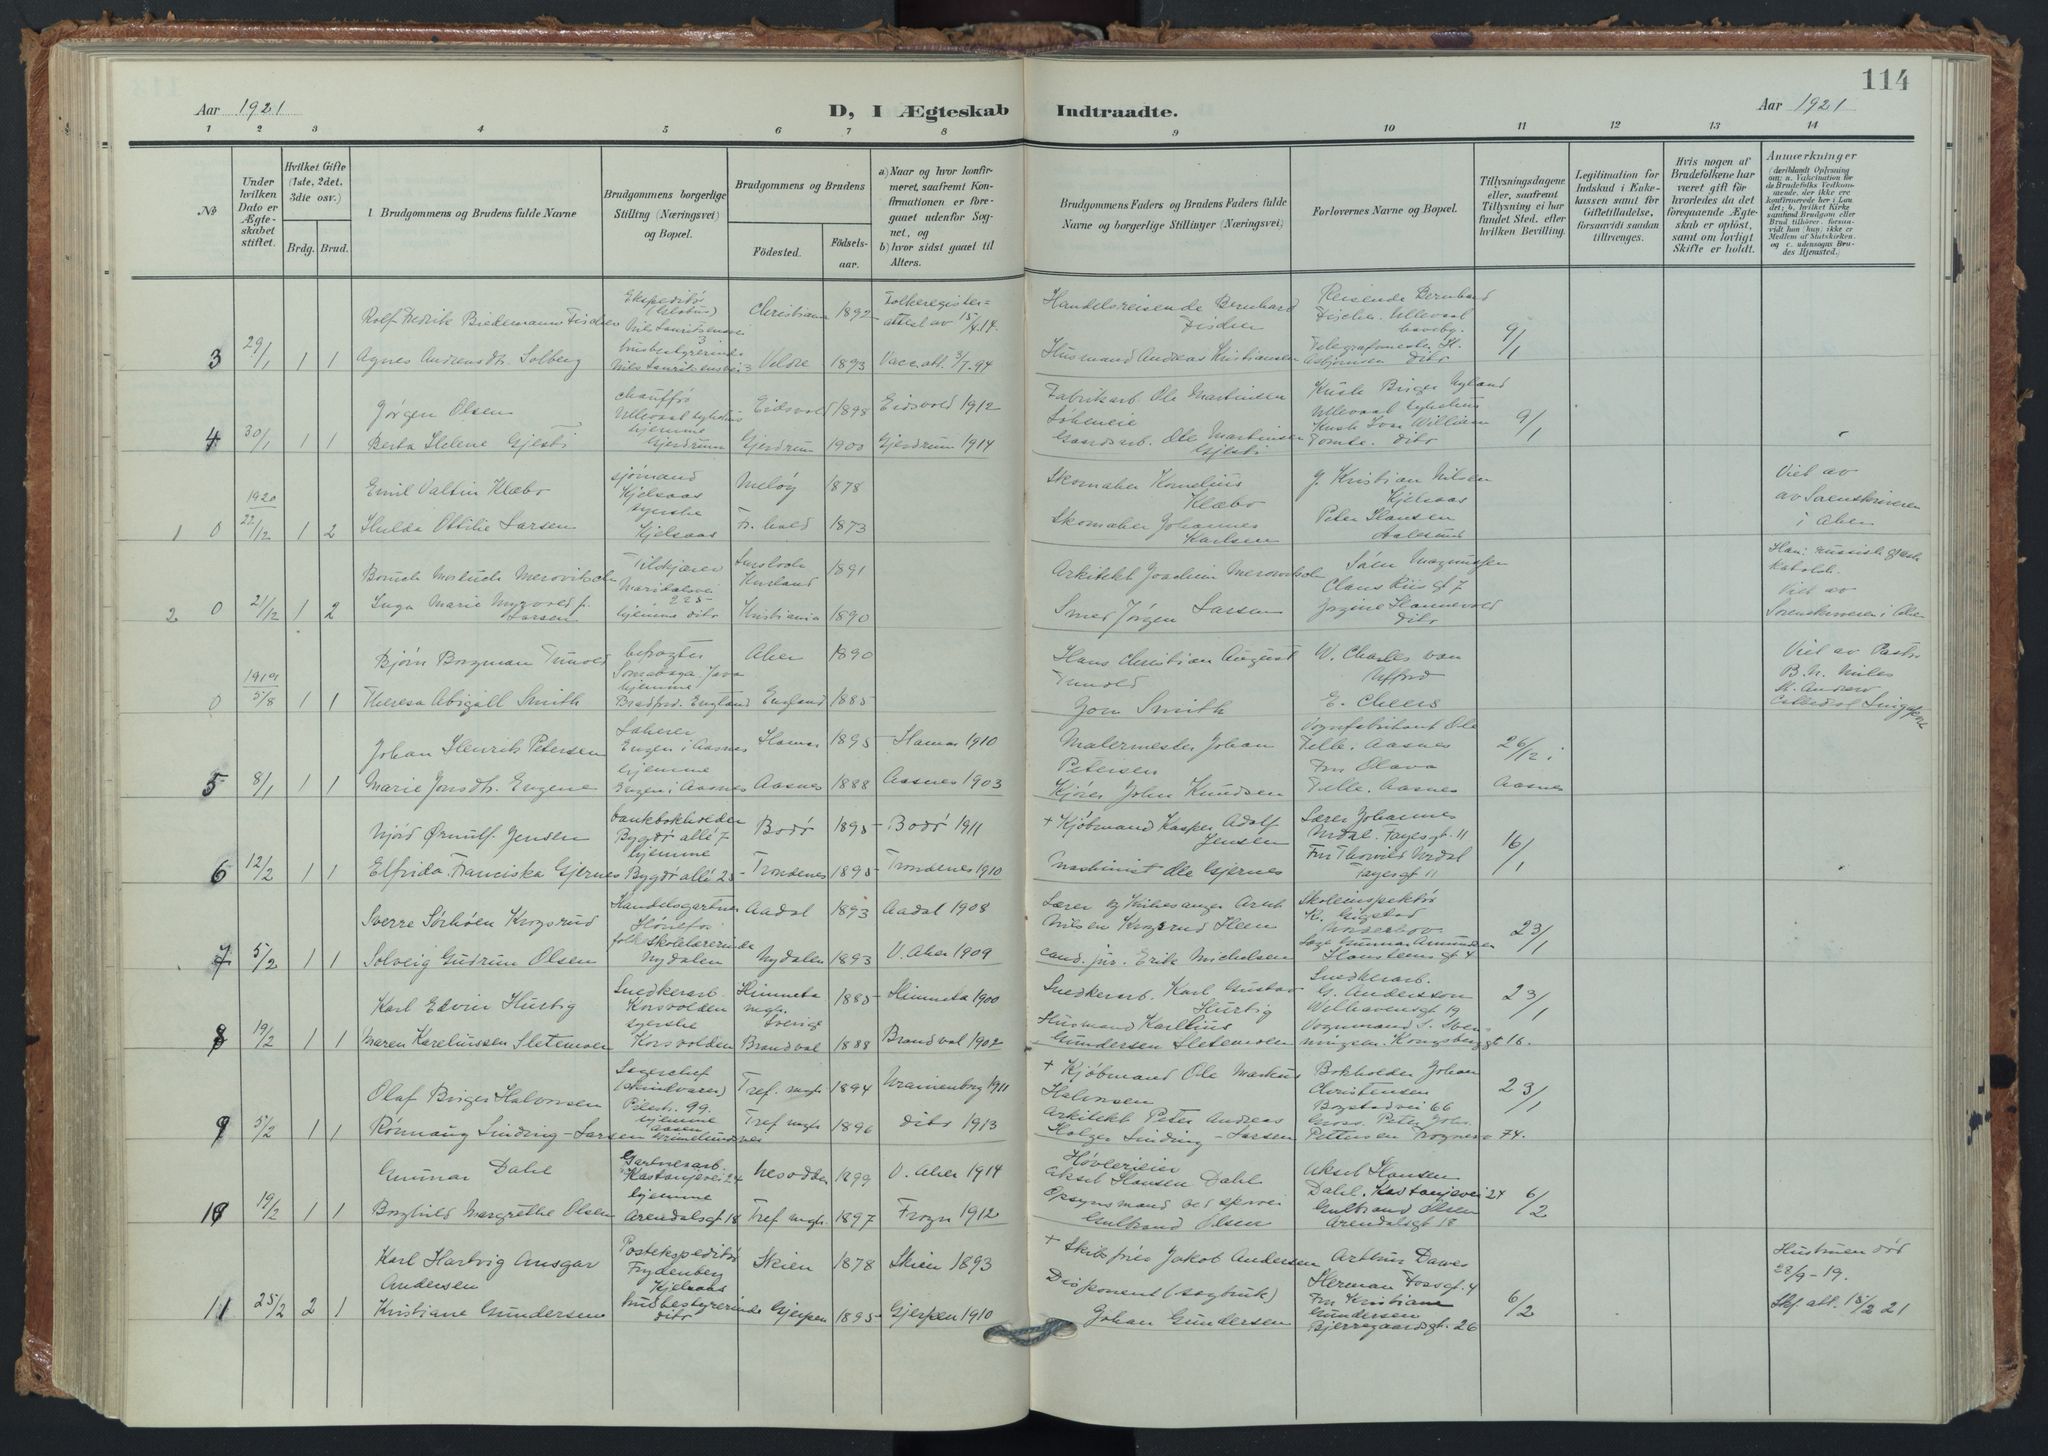 114
Aar 1921
D, I Ægteskab Indtraadte.
Aar 1921
1 2 3 4 5 6 7 8 9 10 11 12 13 14
No
Under hvilken Dato er Ægteskabet stiftet.
Hvilket Gifte (1ste, 2det, 3die osv.)
Brdg. Brud.
Brudgommens og Brudens fulde Navne
Brudgommens borgerlige Stilling (Næringsvei) og Bopæl.
Brudgommens og Brudens
Fødested.
Fødselsaar.
a) Naar og hvor konfirmeret, saafremt Konfirmationen er foregaaet udenfor Sognet, og
b) hvor sidst gaaet til Alters.
Brudgommens Faders og Brudens Faders fulde Navne og borgerlige Stillinger (Næringsvei)
Forlovernes Navne og Bopæl.
Tillysningsdagene eller, saafremt Tillysning ei har fundet Sted, efter hvilken Bevilling.
Legitimation for Indskud i Enkekassen samt for Giftetilladelse, forsaavidt saadan tiltrænges.
Hvis nogen af Brudefolkene har været gift før hvorledes da det foregaaende Ægteskab er opløst, samt om lovligt Skifte er holdt.
Anmærkninger
3 29/1 1 1
Rolf Fredrik Biedemann Fischer
Christiania 1892 Folkeregisterattest av 15/4.14.
Handelsreisende Bernhard Fischer
Reisende Bernhard Fischer. Ullevaal haveby.
Agnes Andreasdtr. Solberg
husbestyrerinde Nils Lauritsensvei 3
Veldre 1893 Vacc.att. 3/7.94
Husmand Andreas Kristiansen
9/1
4 30/1 1 1
Jørgen Olsen
chauffør Ullevaal sykehus
Eidsvold 1898 Eidsvold 1912
Fabrikarb. Ole Martinsen
Berta Helene Gjesti
hjemme Gjerdrum
Gjerdrum 1900 Gjerdrum 1914
Gaardsarb. Ole Martinsen Gjesti
9/1
1 0 1920 22/12 1 2
Emil Valtin Klæbo
sjømand Kjelsaas
Meløy 1878
Skomaker Kornelius Klæbo
J. Kristian Nilsen Kjelsaas
Viet av
av Sorenskriveren
i Aker
Hulda Ottilie Larsen
syerske Kjelsaas
Fr.hald 1873
Skomaker Johannes Karlsen
Peter Hansen Aalesund
2 0 21/12 1 2
1891
Arkitekt Joachim Merovitsch
Søren Magnussen
Claus Riis gt 7
Inga Marie Myrvold f. Larsen
hjemme ditto
Kristiania 1890
Smed Jørgen Larsen
Viet av
Sorenskriveren i Aker
0 1919 5/8 1 1
Bjørn Borgman Tunold
Aker 1890
Hans Christian August Tunold
W. Charles van Ufford
Viet av Pastor
Theresa Abigall Smith
hjemme Bradford. England
England 1885
Jon Smith
E. Cheers
5 8/1 1 1
Johan Henrik Petersen
Engen i Aasnes
Hamar 1895 Hamar 1910
Malermester Johan Petersen
Vognfabrikant Ole Felle. Aasnes
26/12 i
Marie Jonsdtr. Engene
hjemme Engen i Aasnes
Aasnes 1888 Aasnes 1903
Kjører John Knudsen
Fru Olava Felle. Aasnes
Aasnes
6 12/2 1 1
Njød Ørnulf Jensen
bankbokholder Bygdø allé 7
Bodø 1895 Bodø 1911
+ Kjøbmand Kasper Adolf Jensen
Lærer Johannes Urdal. Fayesgt. 11
16/1
Elfrida Franciska Gjernes
hjemme Bygdø allé 25
Trondenes 1895 Trondenes 1910
Maskinist Ole Gjernes
Fru Thorvild Urdal Fayesgt 11
7 5/2 1 1
Sverre Sørhøen Krogsrud
Handelsgartner Hønefos
Aadal 1893 Aadal 1908
Lærer og Kirkesanger Arnt Nilsen Krogsrud Heen
Skoleinspektør
23/1
Solveig Gudrun Olsen
folkeskolelærerinde Nydalen
Nydalen 1893 V. Aker 1909
cand. jur. Erik Michelsen
8 19/2 1 1
Karl Edvin Hurtig
Snedkerarb. Korsvolden
Himmeta Sverige 1885 Himmeta 1900
Snedkerarb. Karl Gustav Hurtig
Snedkerarb. G. Andersson Welhavensgt 19
23/1
Maren Kareliussen Sletemoen
syerske Korsvolden
Brandval 1888 Brandval 1902
Husmand Karelius Gundersen Sletemoen
9 5/2 1 1
Olaf Birger Halvorsen
Lagerchef
Pilestr. 99.
Tref. mgh. 1894 Uranienborg 1911
+ Kjøbmand Ole Markus Halvorsen
Bokholder Johan Christensen Bogstadvei 66
23/1
Rønnaug Sinding-Larsen
Tref mgh. 1896 ditto 1913
Arkitekt Peter Andreas Holger Sinding-Larsen
Gross. Peter Johs. Pettersen Frognerv 74.
10 19/2 1 1
Gunnar Dahl
Gartnerarb. Kastanjevei 24
Nesodden 1899 V. Aker 1914
Høvlerieier Aksel Hansen Dahl
Aksel Hansen Dahl. Kastanjevei 24
6/2
Borghild Margrethe Olsen
hjemme Arendalsgt 18
Tref mgh. 1897 Frogn 1912
Opsynsmand ved sporvei Gulbrand Olsen
Gulbrand Olsen Arendalsgt 18
11 25/2 2 1
Karl Hartvig Ansgar Andersen
Postekspeditør Frydenberg Kjelsaas
Skien 1878 Skien 1893
+ Skibsfører Jakob Andersen
Arthur Dawes Herman Fossgt. 4
Hustruen død
28/9-19.
Skf att. 15/2 21
Kristiane Gundersen
husbestyrerinde ditto
Gjerpen 1895 Gjerpen 1910
Disponent (sagbruk) Johan Gundersen
Fru Kristiane Gundersen Bjerregaardsgt. 26
6/2